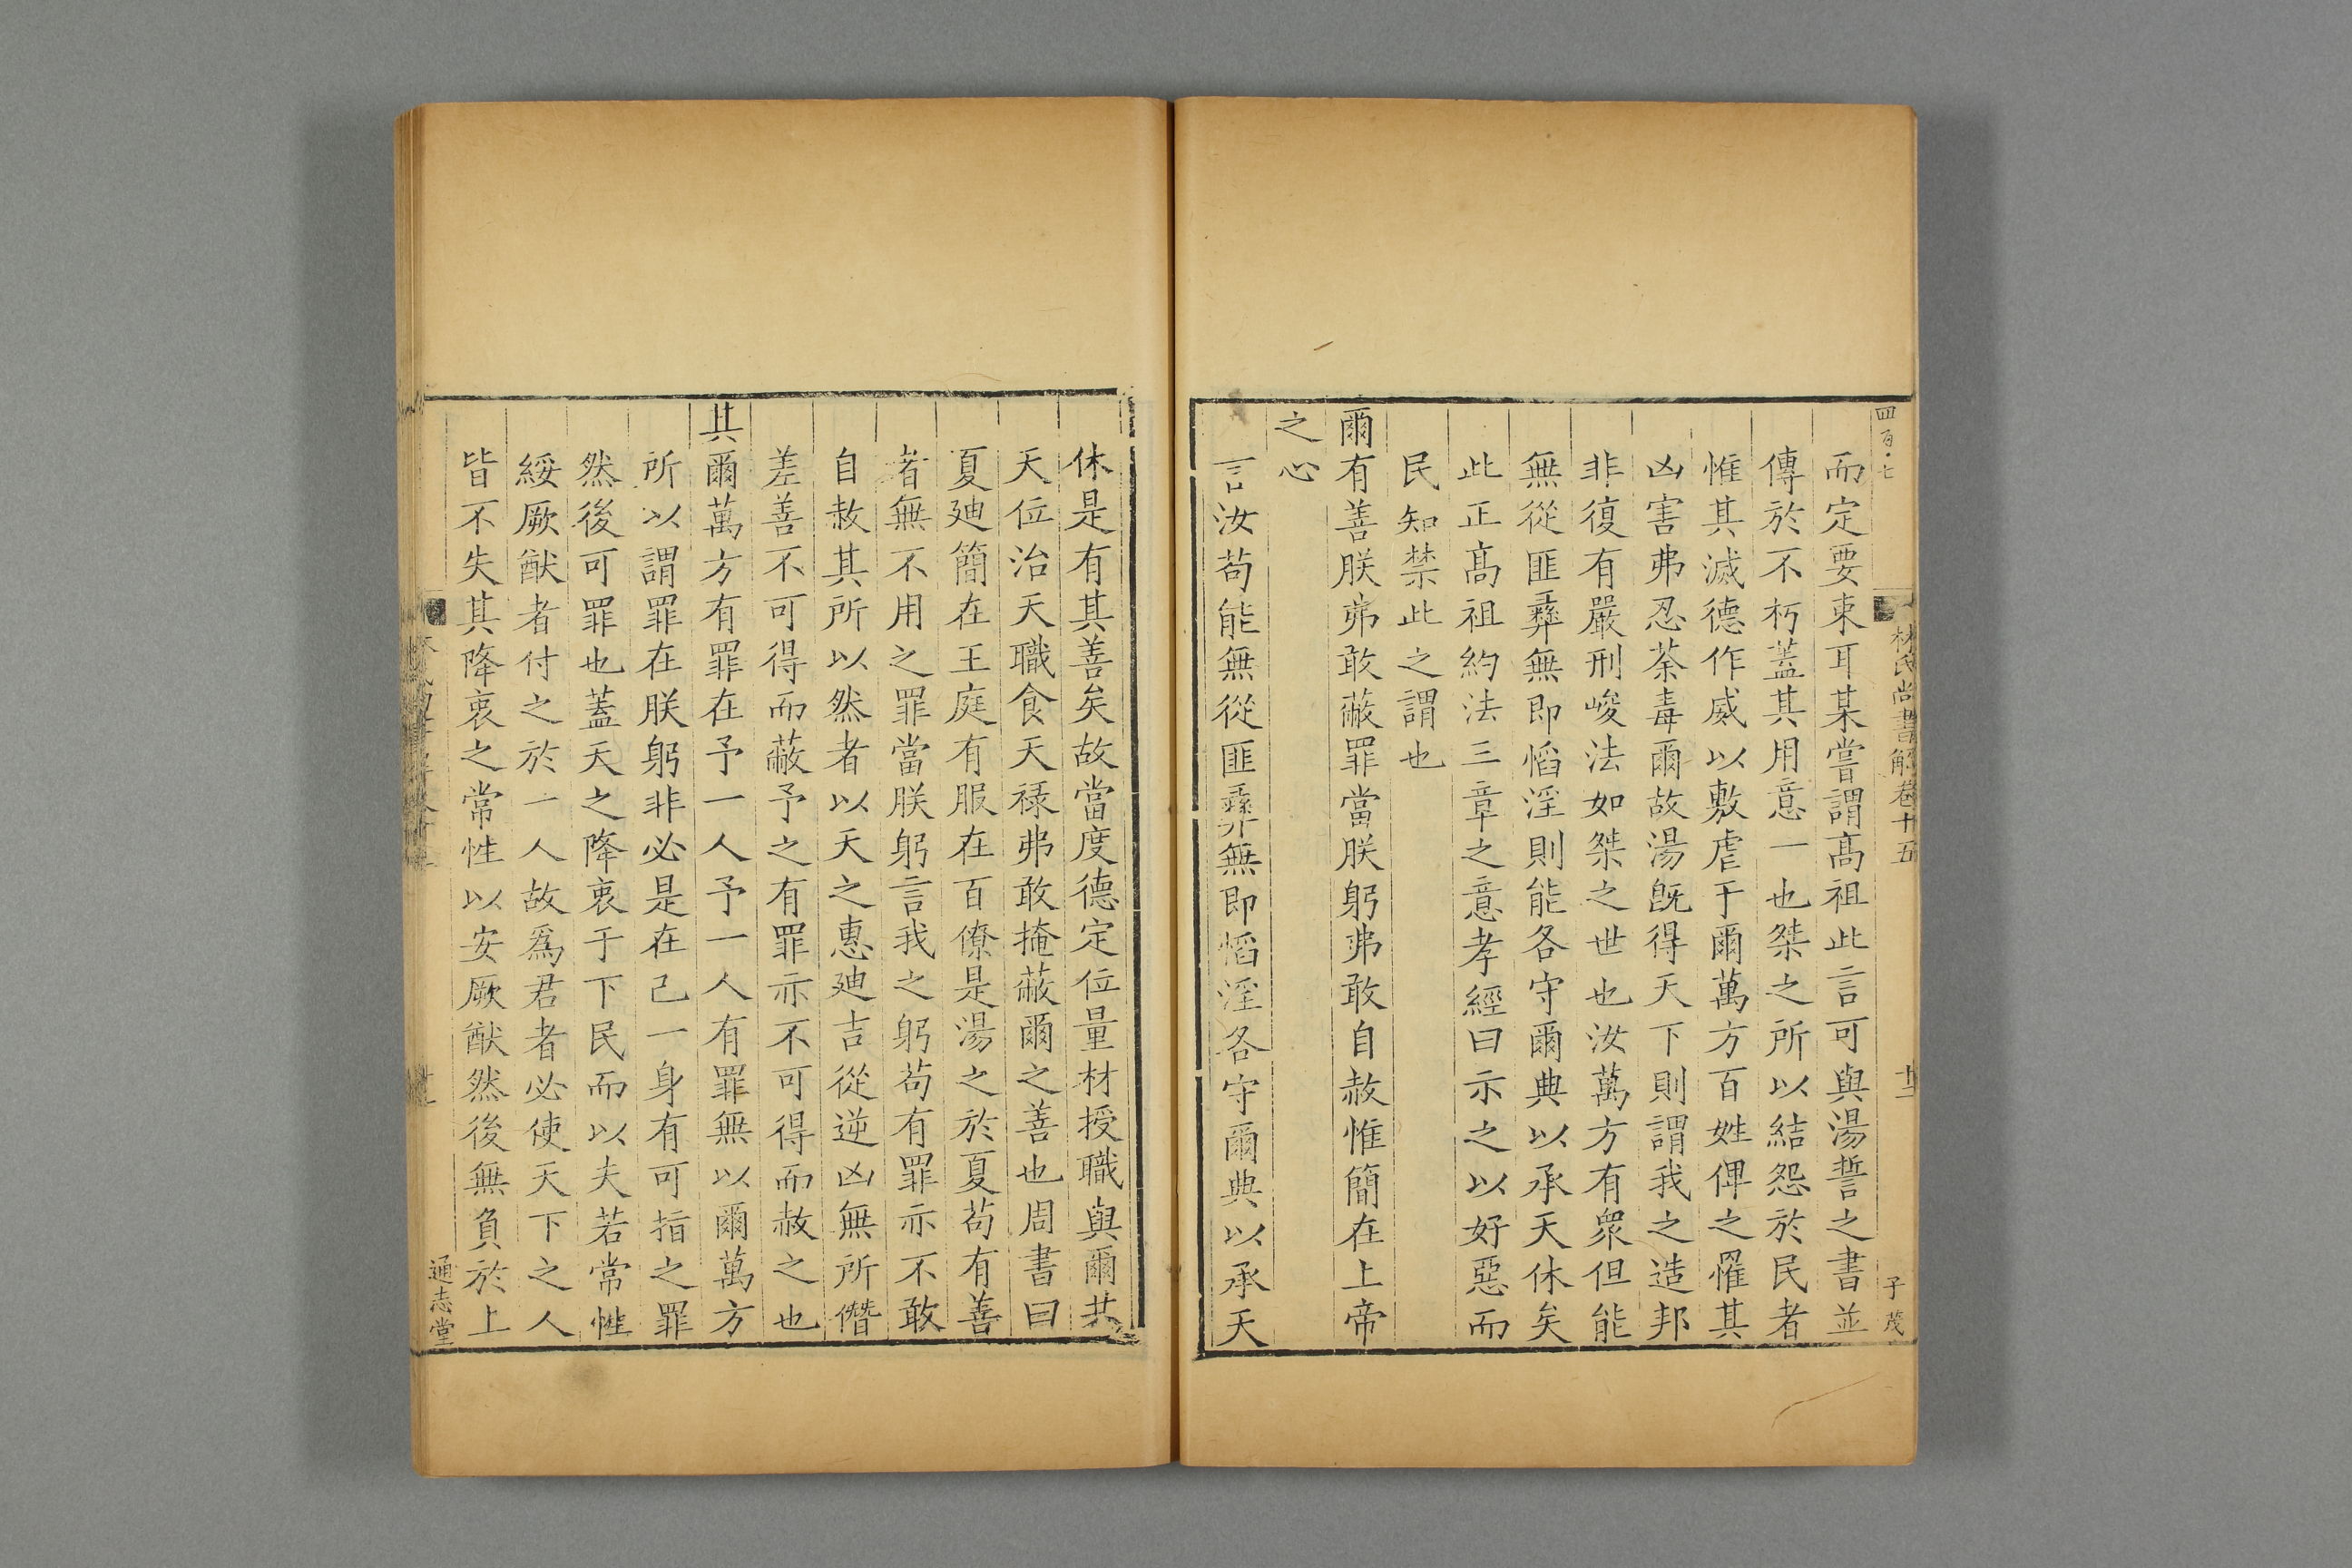 四百七
林氏尚書解卷十五
十二
子茂
而定要束耳某嘗謂髙祖此言可與湯誓之書並
傳於不朽蓋其用意一也桀之所以結怨於民者
惟其滅德作威以敷虐于爾萬方百姓俾之罹其
凶害弗忍荼毒爾故湯旣得天下則謂我之造邦
非復有嚴刑峻法如桀之世也汝萬方有衆但能
無從匪彞無即慆淫則能各守爾典以承天休矣
此正髙祖約法三章之意孝經曰示之以好惡而
民知禁此之謂也
爾有善朕弗敢蔽罪當朕躬弗敢自赦惟簡在上帝
之心
言汝茍能無從匪彞無即慆淫各守爾典以承天
休是有其善矣故當度德定位量材授職與爾共
天位治天職食天祿弗敢掩蔽爾之善也周書曰
夏廸簡在王庭有服在百僚是湯之於夏茍有善
者無不用之罪當朕躬言我之躬茍有罪亦不敢
自赦其所以然者以天之惠廸吉從逆凶無所僭
差善不可得而蔽予之有罪亦不可得而赦之也
其爾萬方有罪在予一人予一人有罪無以爾萬方
所以謂罪在朕躬非必是在己一身有可指之罪
然後可罪也蓋天之降衷于下民而以夫若常性
綏厥猷者付之於一人故爲君者必使天下之人
皆不失其降衷之常性以安厥猷然後無負於上
通志堂